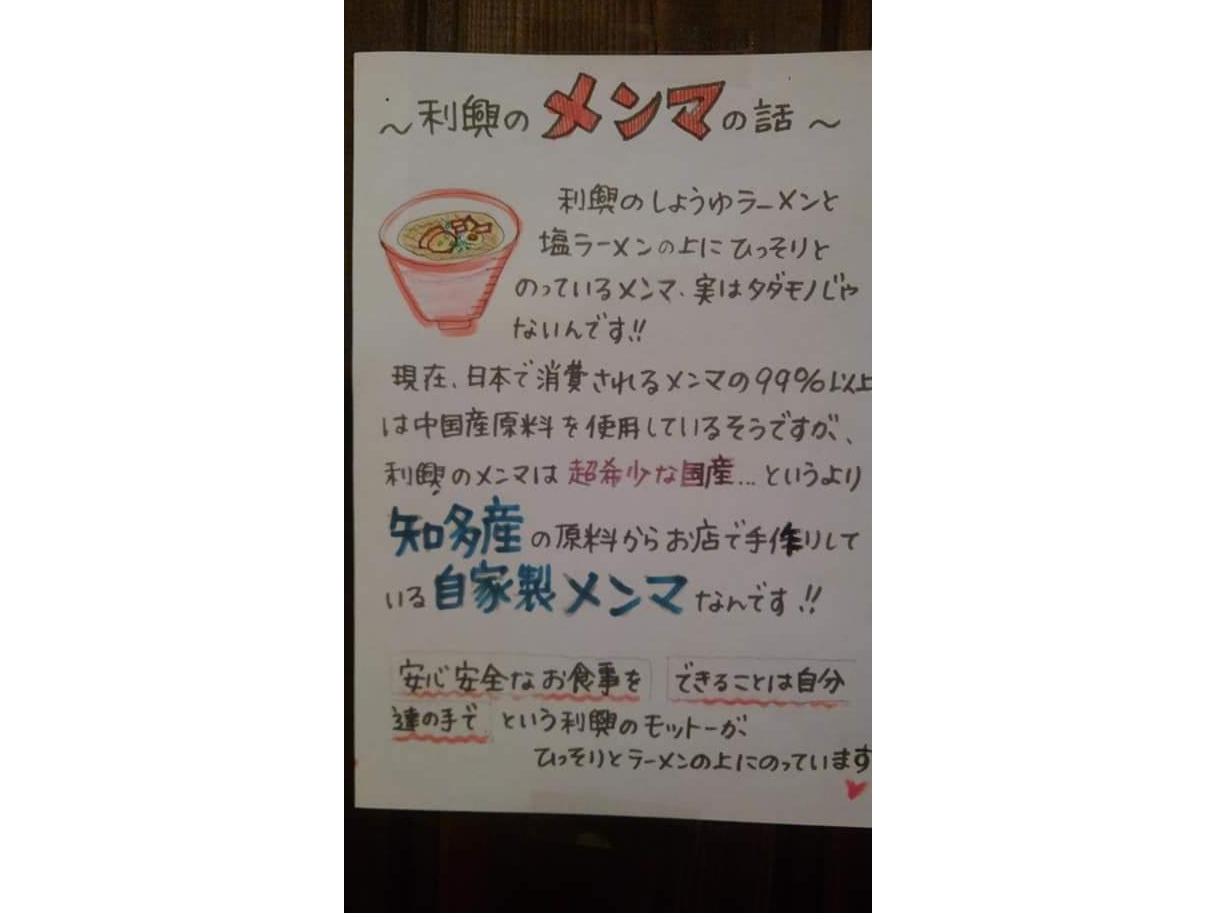 ～利興のメンマの話～
利興のしょうゆラーメンと
塩ラーメンの上にひっそりと
のっているメンマ、実はタダモノじゃ
ないんです!!
現在、日本で消費されるメンマの99%以上
は中国産原料を使用しているそうですが、
利興のメンマは超希少な国産...というより
知多産の原料からお店で手作りして
いる自家製メンマなんです!!
安心安全なお食事を できることは自分
達の手で という利興のモットーが、
ひっそりとラーメンの上にのっています